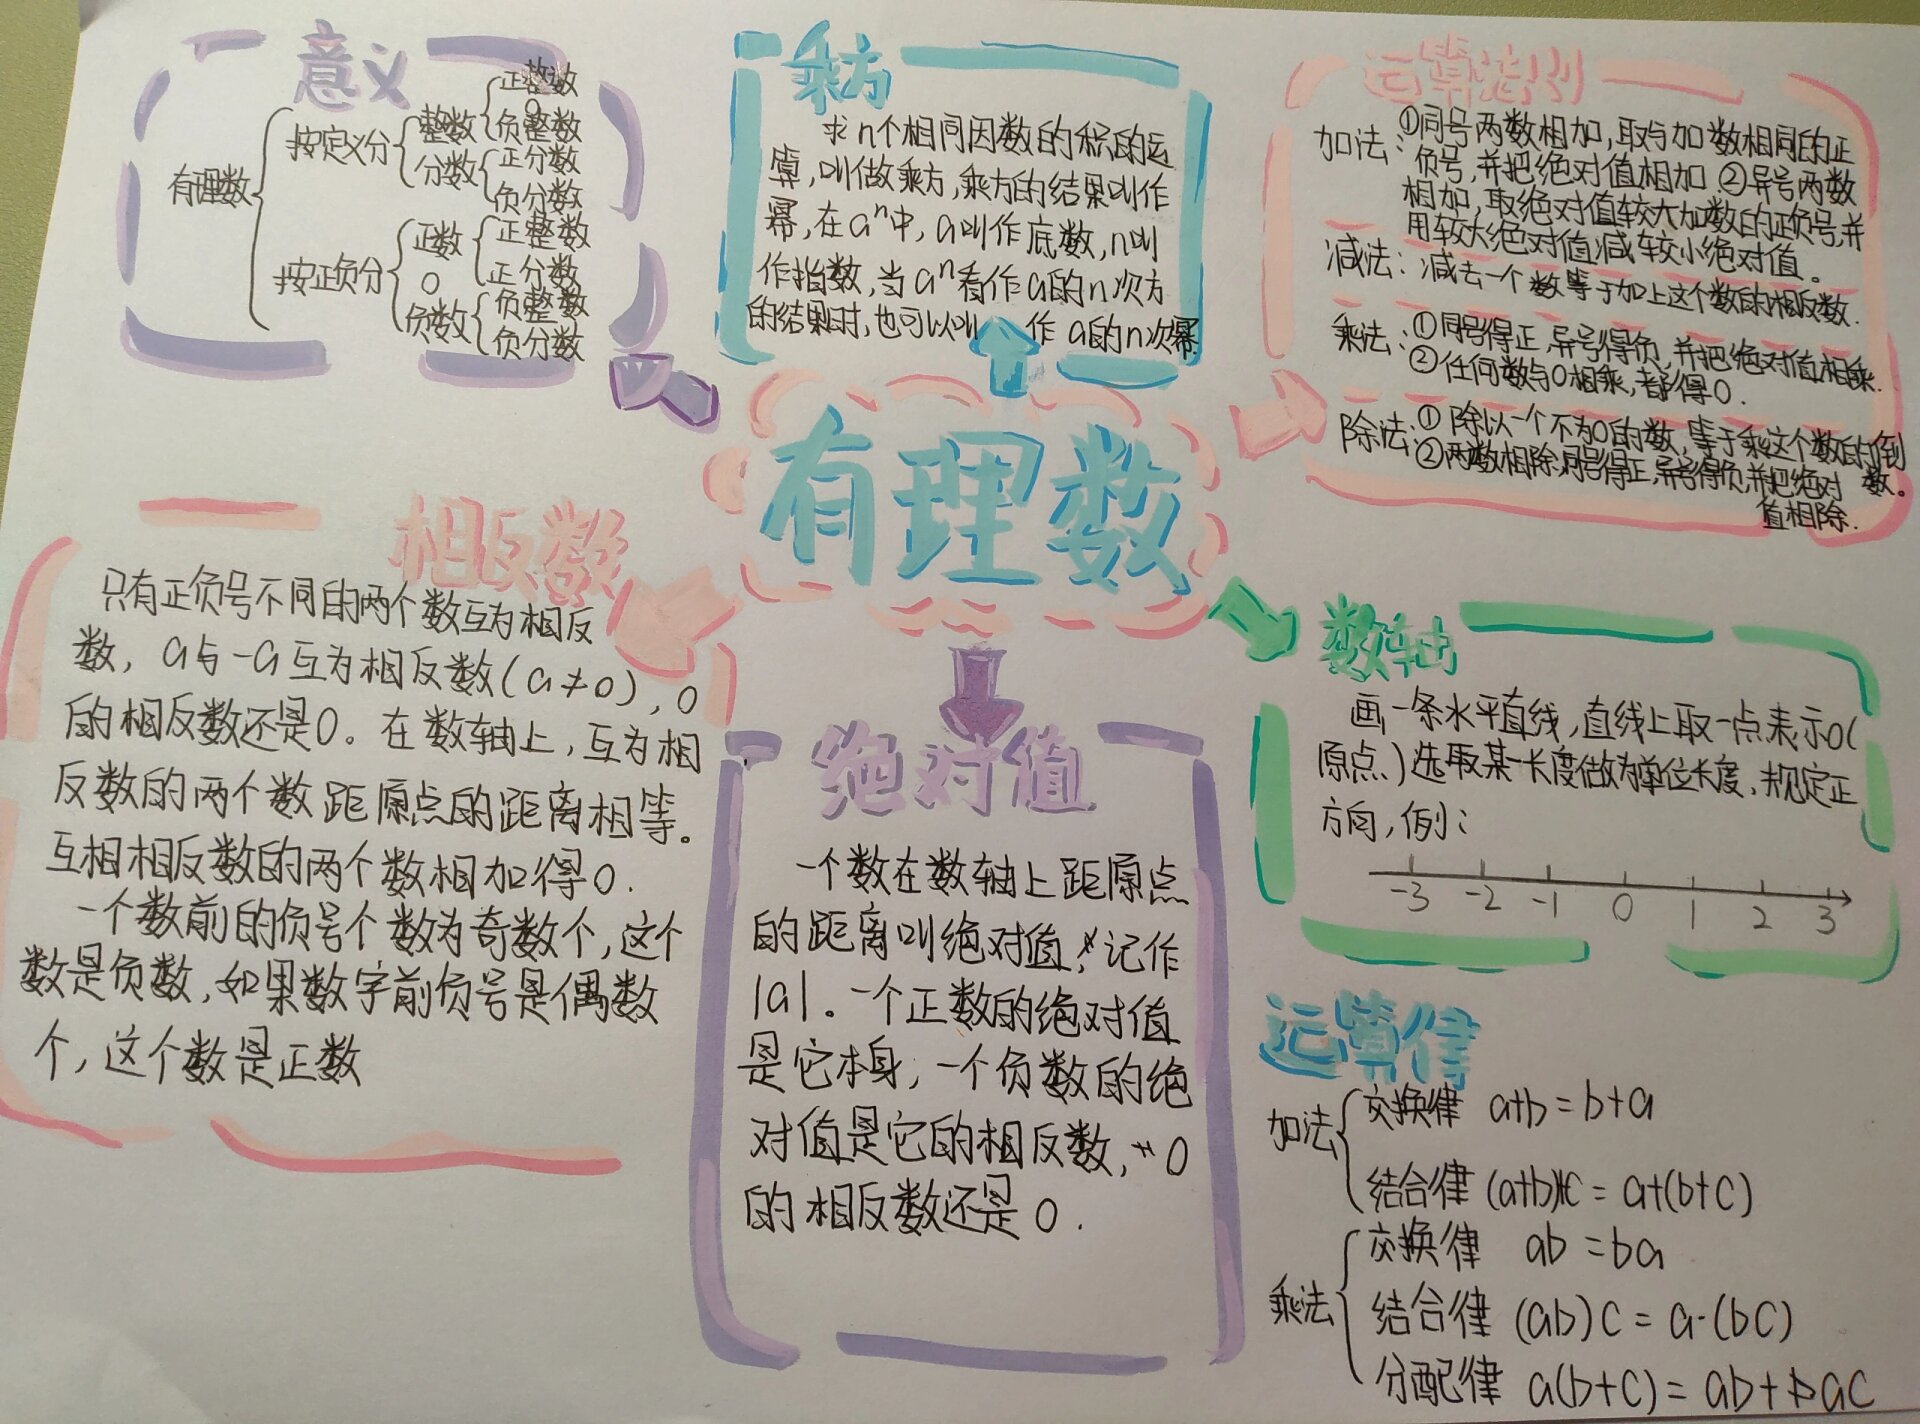 有理数
意义
有理数
按定义分
整数
正整数
0
负整数
分数
正分数
负分数
按正负分
正数
正整数
正分数
0
负数
负整数
负分数
乘方
求n个相同因数的积的运
算,叫做乘方,乘方的结果叫作
幂,在aⁿ中,a叫作底数,n叫
作指数,当aⁿ看作a的n次方
的结果时,也可以叫作a的n次幂.
运算法则
加法:①同号两数相加,取与加数相同的正
负号,并把绝对值相加.②异号两数
相加,取绝对值较大加数的正负号,并
用较大绝对值减较小绝对值。
减法:减去一个数等于加上这个数的相反数.
乘法:①同号得正,异号得负,并把绝对值相乘.
②任何数与0相乘,都得0.
除法:①除以一个不为0的数,等于乘这个数的倒
数。
②两数相除,同号得正,异号得负,并把绝对
值相除.
相反数
只有正负号不同的两个数互为相反
数,a与-a互为相反数(a≠0),0
的相反数还是0。在数轴上,互为相
反数的两个数距原点的距离相等。
互相相反数的两个数相加得0.
一个数前的负号个数为奇数个,这个
数是负数,如果数字前负号是偶数
个,这个数是正数
绝对值
一个数在数轴上距原点
的距离叫绝对值,记作
|a|。一个正数的绝对值
是它本身,一个负数的绝
对值是它的相反数,0
的相反数还是0.
数轴
画一条水平直线,直线上取一点表示0(
原点)选取某一长度做为单位长度,规定正
方向,例:
-3 -2 -1 0 1 2 3
运算律
加法
交换律 a+b=b+a
结合律 (a+b)+c=a+(b+c)
乘法
交换律 ab=ba
结合律 (ab)c=a·(bc)
分配律 a(b+c)=ab+ac